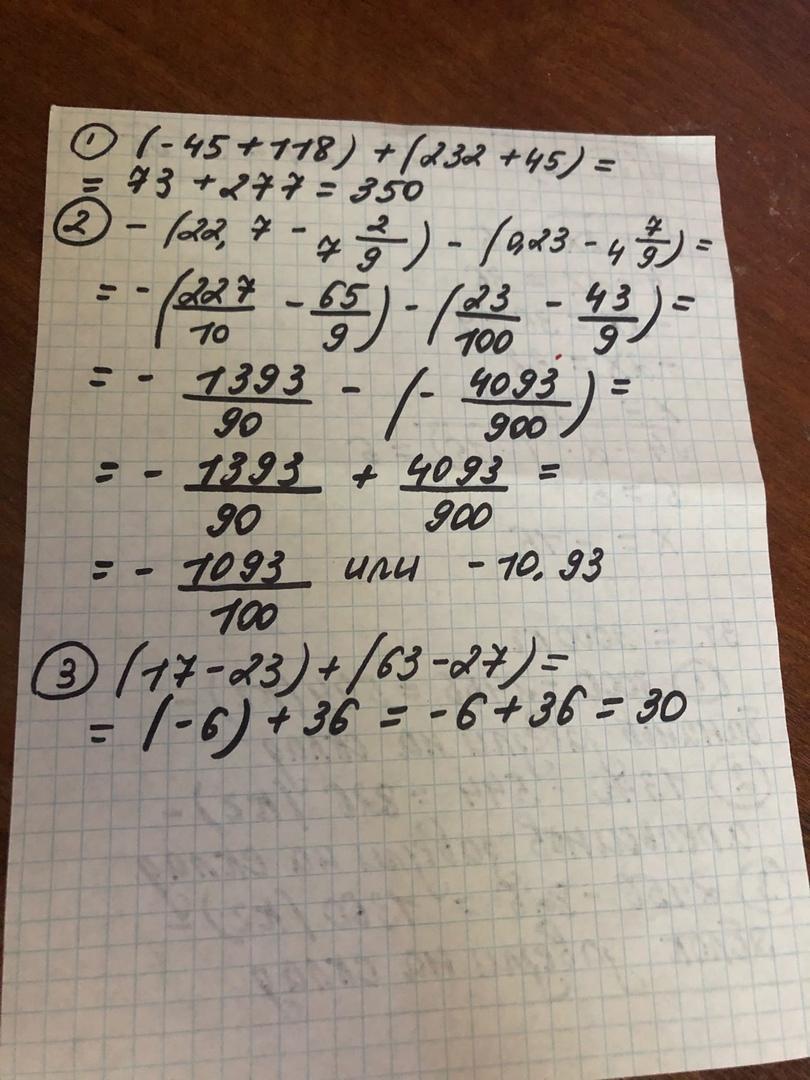 ① (-45+118)+(232+45)=
= 73+277=350
② -(22,7 - 7 2/9) - (0,23 - 4 7/9)=
= -(227/10 - 65/9) - (23/100 - 43/9)=
= - 1393/90 - (- 4093/900)=
= - 1393/90 + 4093/900 =
= - 1093/100 или -10,93
③ (17-23)+(63-27)=
= (-6)+36 = -6+36=30